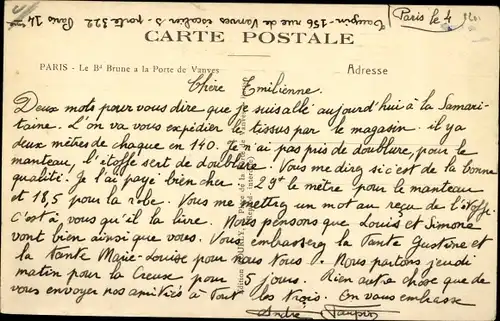 Paris le 4
156 rue de Vanves escalier 3 - porte 322 Paris 14
CARTE POSTALE
PARIS - Le Bd Brune a la Porte de Vanves
Adresse
Chère Emilienne.
Deux mots pour vous dire que je suis allé aujourd'hui à la Samari-
taine. L'on va vous expédier le tissus par le magasin. il y a
deux mètres de chaque en 140. Je n'ai pas pris de doublure, pour le
manteau, l'étoffe sert de doublure. Vous me direz si c'est de la bonne
qualité. Je l'ai payé bien cher 29f le mètre pour le manteau
et 18,5 pour la robe. Vous me mettrez un mot au reçu de l'étoffe
C'est à vous qu'il la livre. Nous pensons que Louis et Simone
vont bien ainsi que vous. Vous embrasserez la Tante Gustine et
la Tante Marie-Louise pour nous. Nous partons jeudi
matin pour la Creuse pour 5 jours. Rien autre chose que de
vous envoyer nos amitiés à tout les trois. On vous embrasse
André